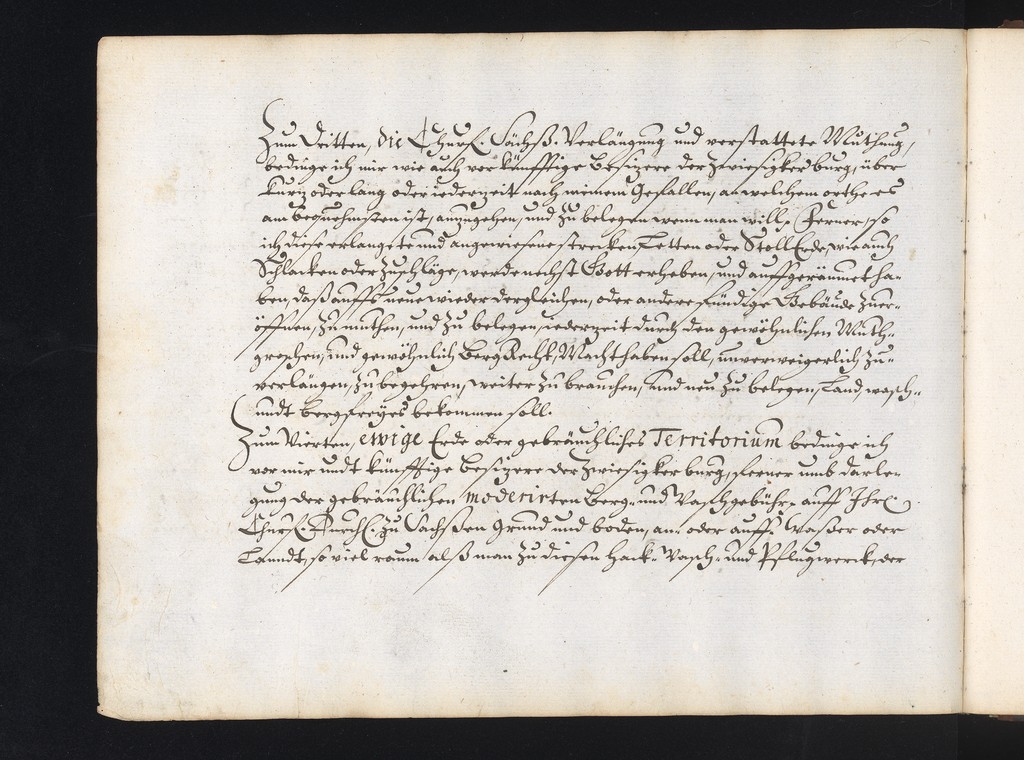 Zum Dritten, die Churf. Sächß. Verlängung und verstattete Muthung,
bedinge ich mir wie auch vor künfftige Besizere der Zwiesigker burg, über
kurz oder lang oder iederzeit nach meinem Gefallen, an welchem orthe es
am bequehmsten ist, anzugehen, und zu belegen wenn man will. Ferner, so
ich diese erlangete und angewiesene strecken Letten oder Stoll Erde, wie auch
Schlacken oder Zuschläge, werde nechst Gott erheben, und auffgeräumet ha-
ben, daß auffs neue wieder dergleichen, oder andere fündige Gebäude zuer-
öffnen, zu muthen, und zu belegen, iederzeit durch den gewöhnlichen Muth-
groschen, und gewöhnlich Berg Recht, Macht haben soll, unverweigerlich, zu
verlängen, zu begehren, weiter zu brauchen, und neu zu belegen, Land, wasch-
undt bergfreyes bekommen soll.
Zum Vierten, ewige Erde oder gebräuchliches Territorium bedinge ich
vor mir undt künfftige besizere der Zwiesigker burg, ferner umb darle-
gung der gebräuchlichen moderirten Berg- und Waschgebühr, auff Ihre
Churf. Durchl. zu Sachßen Grund und boden, an- oder auff Waßer oder
Lanndt, so viel raum alß man zu diesen Hack- Wasch- und Pflugwerck, der